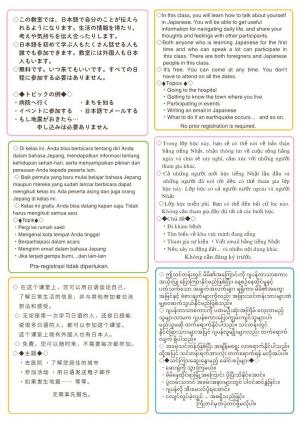 ◇この教室では、日本語で自分のことが伝えら
れるようになります。生活の情報を得たり、
考えや気持ちを伝え合ったりします。
◇日本語を初めて学ぶ人もたくさん話せる人も
誰でも参加できます。教室には外国人も日本
人もいます。
◇無料です。いつ来てもいいです。すべての日
程に参加する必要はありません。
◇◆トピックの例◆◇
・病院へ行く ・まちを知る
・イベントに参加する ・日本語でメールする
・もし地震がおきたら…
申し込みは必要ありません
◇In this class, you will learn how to talk about yourself
in Japanese. You will be able to get useful
information for navigating daily life, and share your
thoughts and feelings with other participants.
◇Both anyone who is learning Japanese for the first
time and who can speak a lot can participate in
this class. There are both foreigners and Japanese
people in this class.
◇It's free. You can come at any time. You don't
have to attend on all the dates.
◇◆Topics◆◇
・Going to the hospital
・Getting to know the town where you live
・Participating in events
・Writing an email in Japanese
・What to do if an earthquake occurs… and so on.
No prior registration is required.
◇Di kelas ini, Anda bisa berbicara tentang diri Anda
dalam bahasa Jepang, mendapatkan informasi tentang
kehidupan sehari-hari, serta menyampaikan pikiran dan
perasaan Anda kepada peserta lain.
◇Baik pemula yang baru mulai belajar bahasa Jepang
maupun mereka yang sudah lancar berbicara dapat
mengikuti kelas ini. Ada peserta asing dan juga orang
Jepang di kelas ini.
◇Kelas ini gratis. Anda bisa datang kapan saja. Tidak
harus mengikuti semua sesi.
◇◆Topik◆◇
・Pergi ke rumah sakit
・Mengenal kota tempat Anda tinggal
・Berpartisipasi dalam acara
・Mengirim email dalam bahasa Jepang
・Jika terjadi gempa bumi... dan lain-lain
Pra-registrasi tidak diperlukan.
◇Trong lớp học này, bạn sẽ có thể nói về bản thân
bằng tiếng Nhật, nhận thông tin về cuộc sống hằng
ngày và chia sẻ suy nghĩ, cảm xúc với những người
tham gia khác.
◇Cả những người mới học tiếng Nhật lần đầu và
những người đã nói tốt đều có thể tham gia lớp
học này. Lớp học có cả người nước ngoài và người
Nhật.
◇Lớp học miễn phí. Bạn có thể đến bất cứ lúc nào.
Không cần tham gia đầy đủ tất cả các buổi học.
◇◆Chủ đề◆◇
・Đi khám bệnh
・Tìm hiểu về khu vực mình đang sống
・Tham gia sự kiện ・Viết email bằng tiếng Nhật
・Nếu xảy ra động đất… và nhiều nội dung khác.
Không cần đăng ký trước.
◇在这个课堂上，您可以用日语谈论自己，
了解日常生活的信息，并与其他参加者交流
想法和感受。
◇无论是第一次学习日语的人，还是已经能
说很多日语的人，都可以参加这个课堂。
这个课堂上既有外国人也有日本人。
◇免费。您可以随时来，不需要每次都参加。
◇◆主题◆◇
・去医院 ・了解您居住的城市
・参加活动 ・用日语发送电子邮件
・如果发生地震……等等。
无需事先报名。